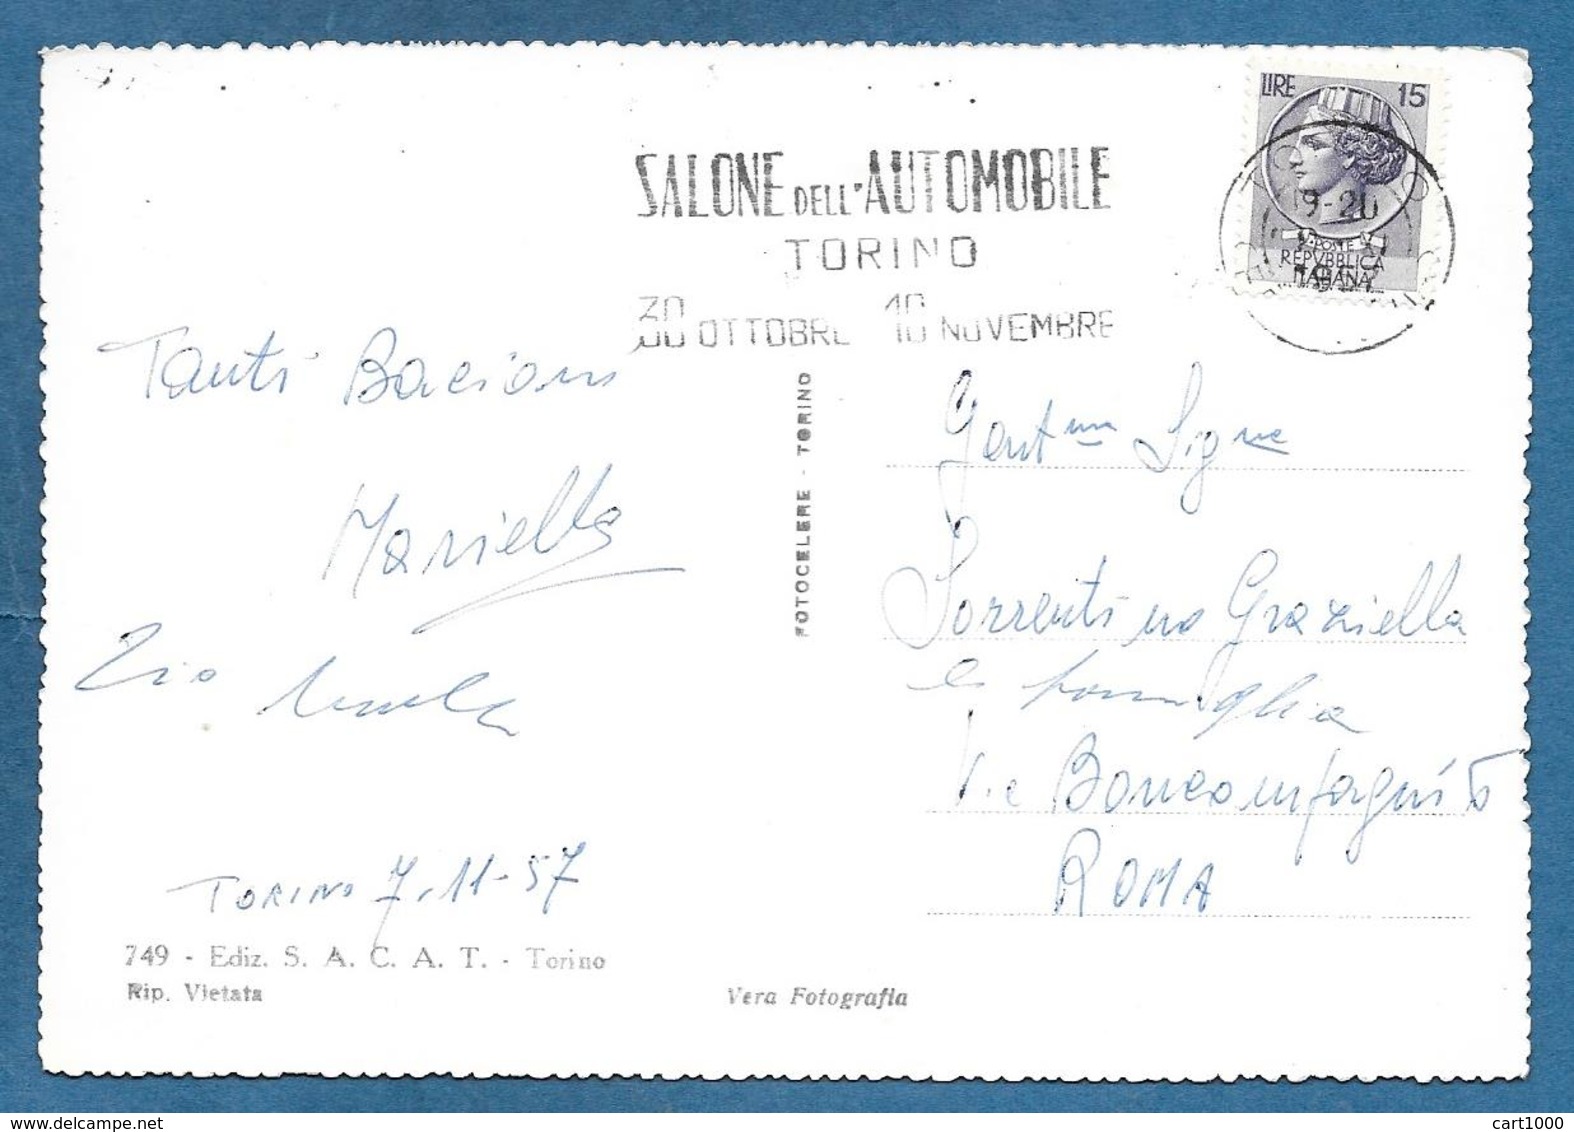 SALONE DELL'AUTOMOBILE
TORINO
30 OTTOBRE 10 NOVEMBRE
LIRE 15
19-20
POSTE
REPVBBLICA
ITALIANA
Tanti Bacioni
Mariella
Zio
TORINO 7.11-57
749 - Ediz. S. A. C. A. T. - Torino
Rip. Vietata
Vera Fotografia
FOTOCELERE - TORINO
Gent.ma Sig.na
Sorrentino Graziella
e famiglia
Via Boncompagni
ROMA
cart1000